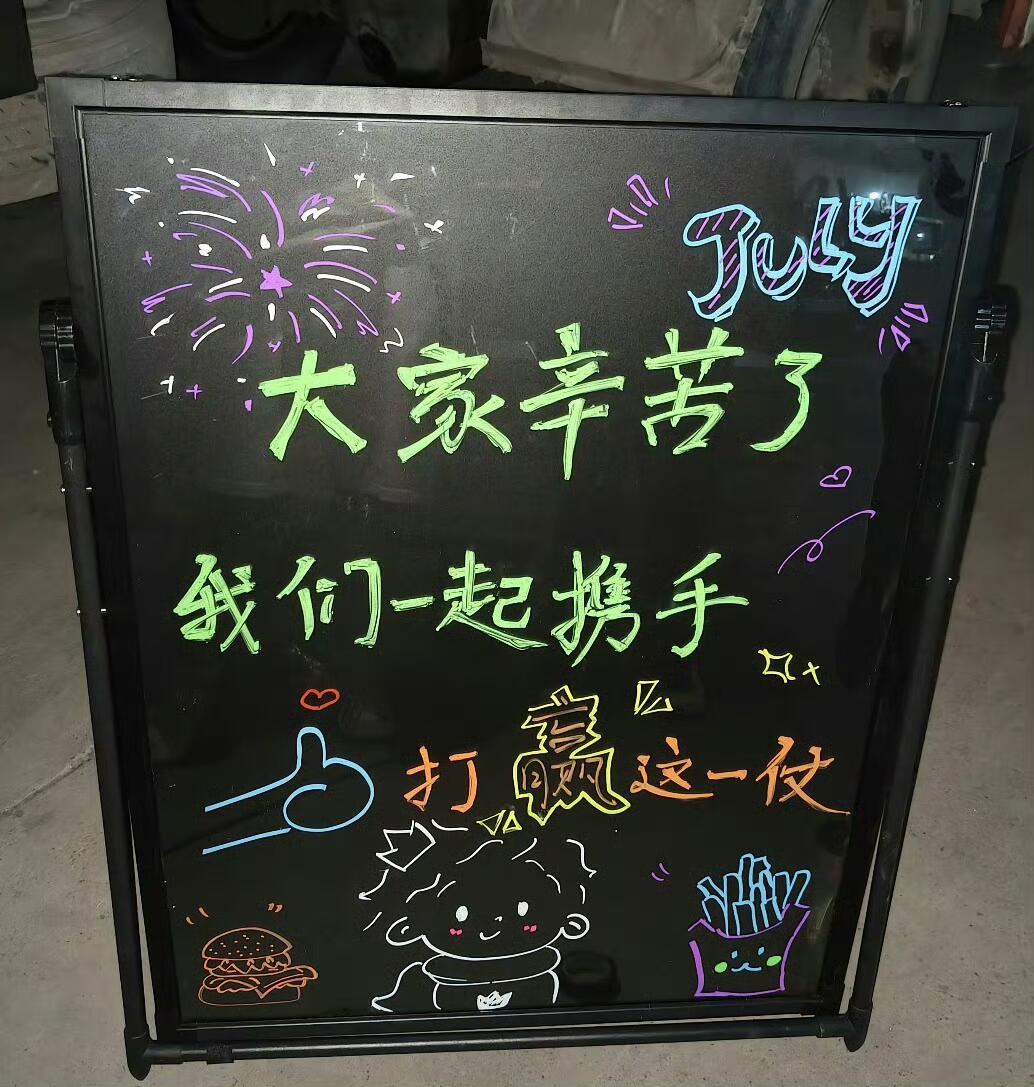 JULY
大家辛苦了
我们一起携手
打赢这一仗